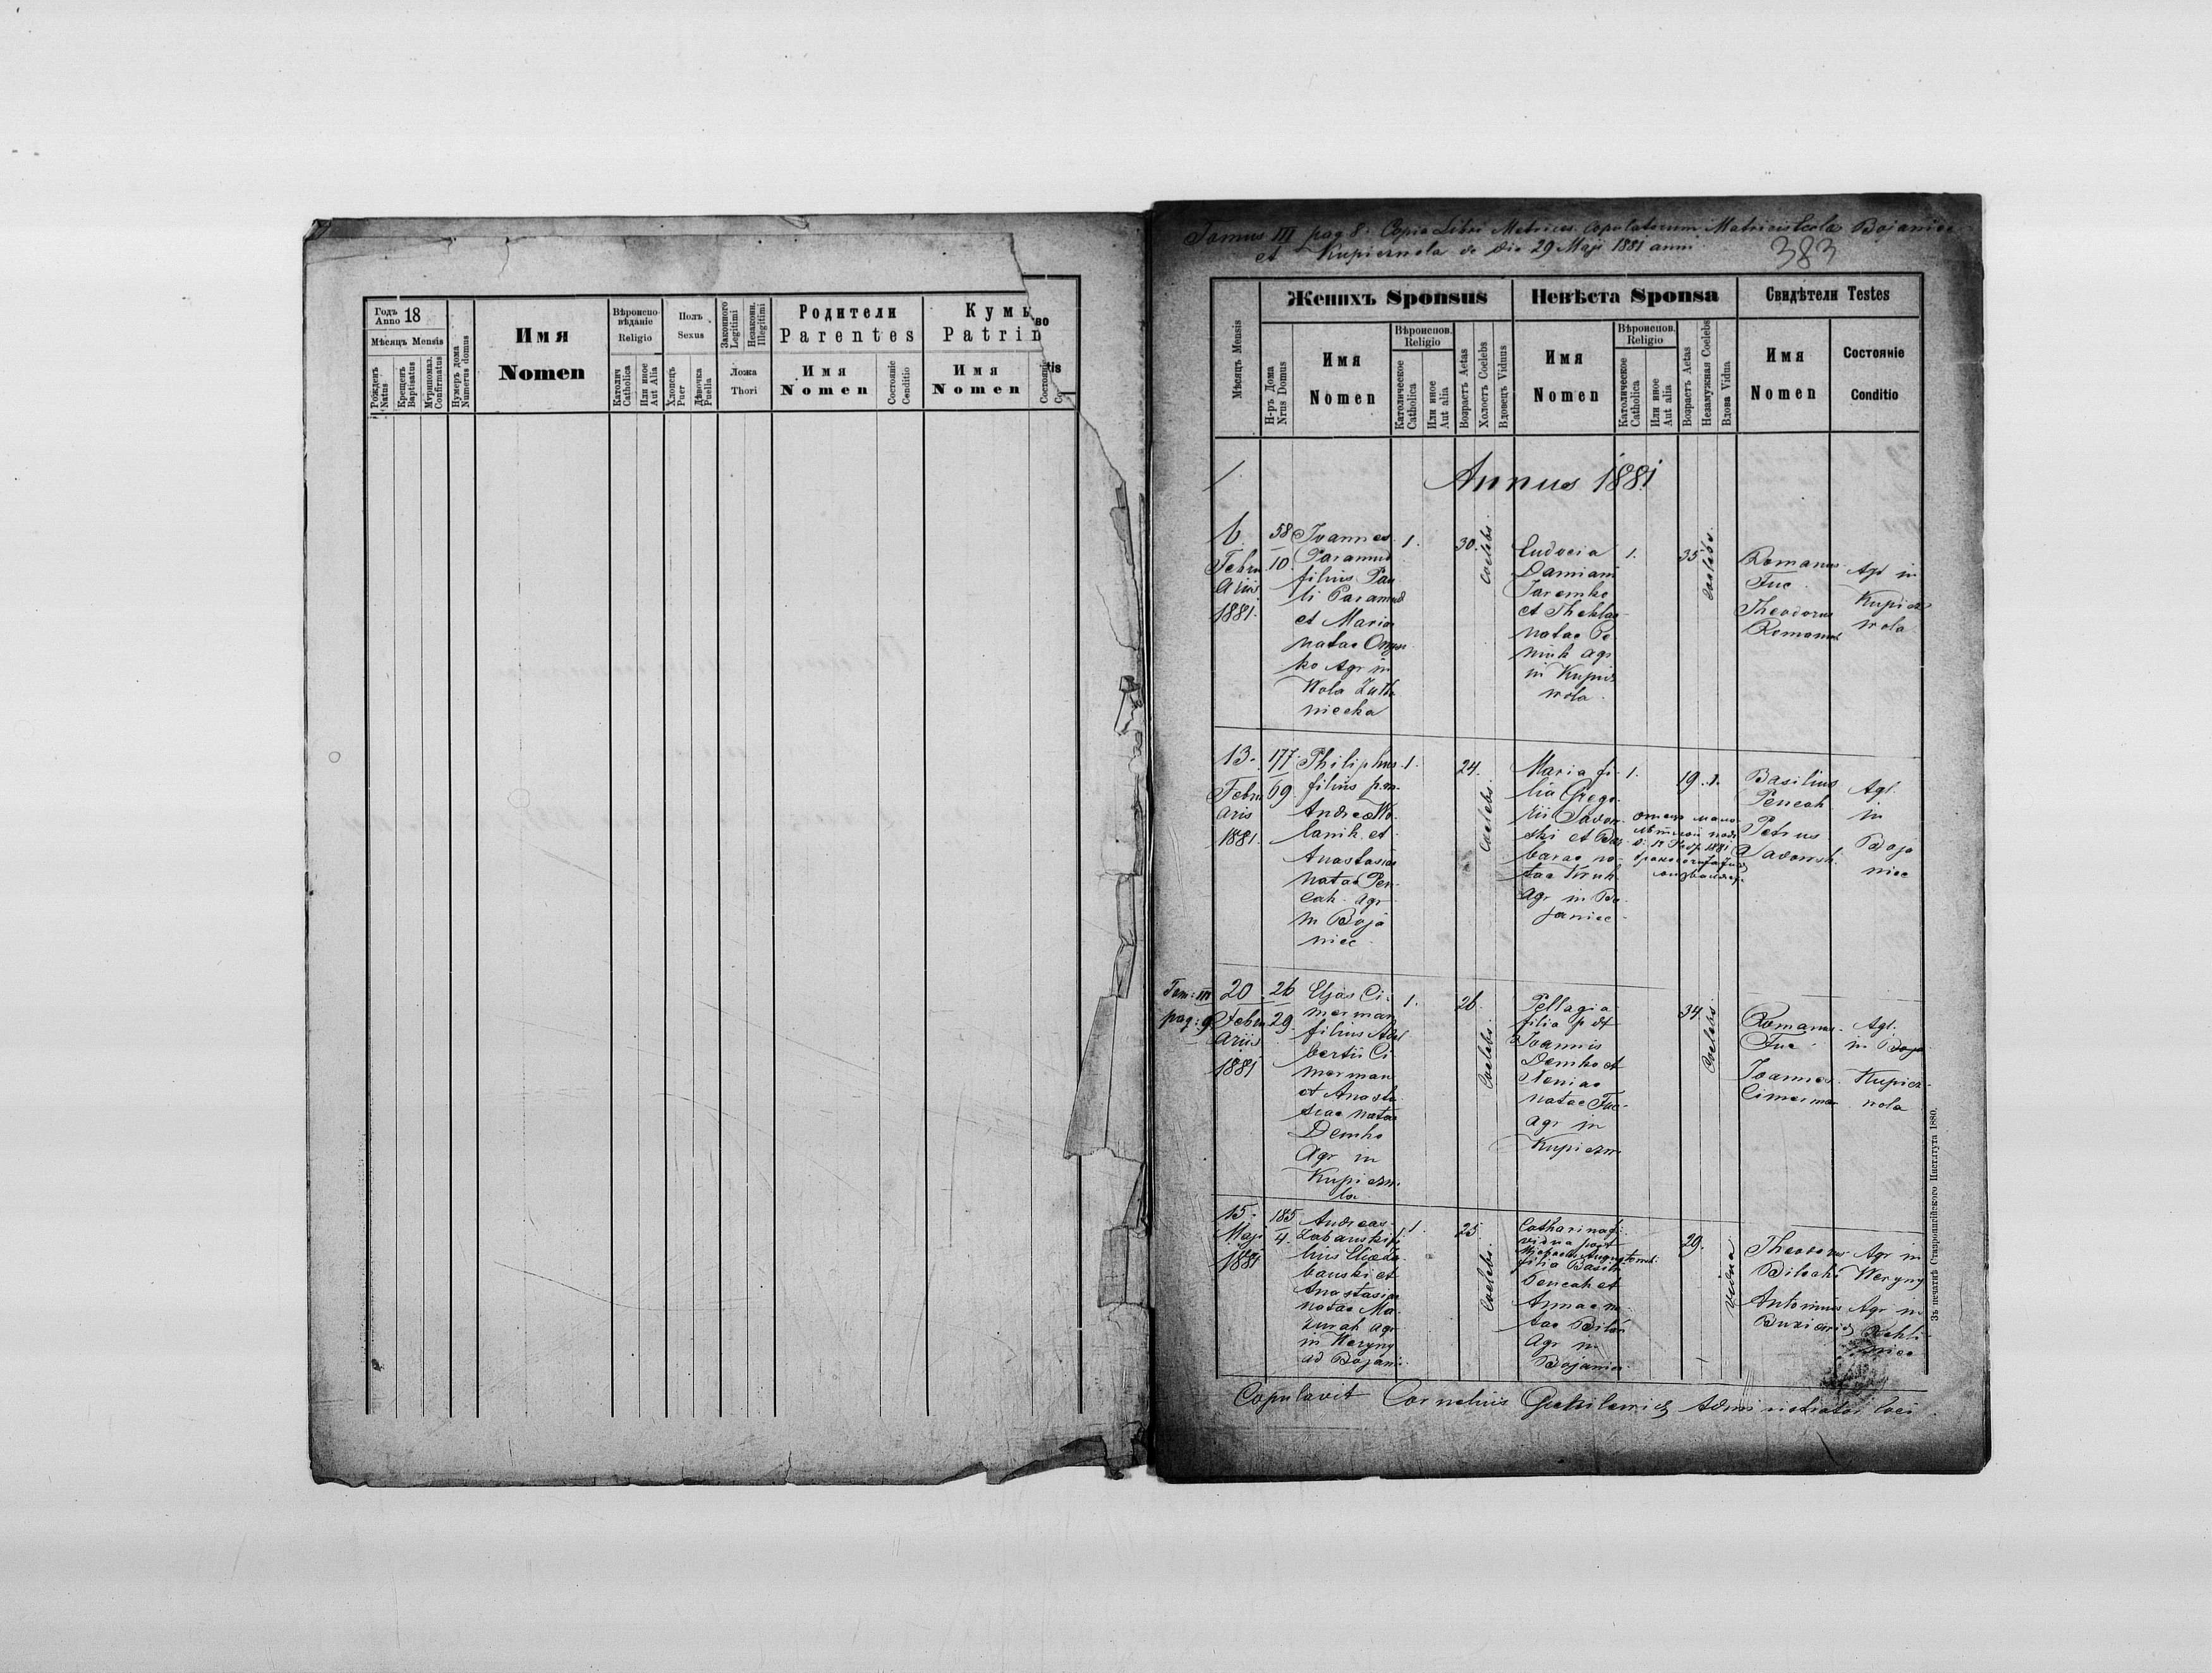 Годъ
Anno 18
Мѣсяцъ Mensis
Рожденъ
Natus
Крещенъ
Baptisatus
Мѵропомаз.
Confirmatus
Нумеръ дома
Numerus domus
Имя
Nomen
Вѣроиспо-
вѣданіе
Religio
Католич
Catholica
Или иное
Aut Alia
Полъ
Sexus
Хлопецъ
Puer
Дѣвочка
Puella
Законного
Legitimi
Незаконн.
Illegitimi
Ложа
Thori
Родители
Parentes
Имя
Nomen
Состояніе
Conditio
Кумы
Patrin
Имя
Nomen
Состояніе
во
tis
Tomus III pag 8. Copia Libri Metrices copulatorum Matricis Eccla Bojaniec
et Kupiczwola de die 29 Maji 1881 anni
383
Мѣсяцъ Mensis
Женихъ Sponsus
Н-ръ Дома
Nrus Domus
Имя
Nomen
Вѣроиспов.
Religio
Католическое
Catholica
Или иное
Aut alia
Возрастъ Aetas
Холостъ Coelebs
Вдовецъ Viduus
Невѣста Sponsa
Имя
Nomen
Вѣроиспов.
Religio
Католическое
Catholica
Или иное
Aut alia
Возрастъ Aetas
Незамужная Coelebs
Вдова Vidua
Свидѣтели Testes
Имя
Nomen
Состояніе
Conditio
Annus 1881
6.
Febru
Ariis
1881.
58
10
Joannes
Paramud
filius Pau
li Paramud
et Maria
natae
ko Agr in
Wola
niecka
1.
30.
coelebs
Eudocia
Damiani
Jaremko
et Theklae
natae Po
niuk agr
in Kupicz
wola
1.
35
coelebs
Romanus
Fuc
Theodorus
Romanus
Agr in
Kupicz
wola
13.
Febru
aris
1881.
177
69.
Philiphus
filius p.m.
Andreae Wo
lanik et
Anastasiae
natae Pen
cak agr
in Boja
niec
1.
24.
coelebs
Maria fi
lia Grego
rii Sadow
ski et Bar
barae na
tae Kruk
agr in Bo
janiec
1.
19. 1.
Basilius
Pencak
Petrus
Sadowsk.
Agr.
in
Boja
niec
Tom: III
pag: 9.
20
Febru
Ariis
1881
26
29.
Elias Ci
merman
filius Adal
bertii Ci
merman
et Anasta
siae natae
Demko
Agr in
Kupiczwo
la
1.
26.
coelebs
Pellagia
filia p df
Joannis
Demko et
Xeniae
natae Fuc
agr in
Kupiczw
34
Coelebs
Romanus
Fuc
Joannes
Cimerman
Agr.
in Boja
Kupicz
wola
15.
Maji
1881
185
4.
Andreas
Labanski fi
lius Eliae La
banski et
Anastasiae
natae Ma
zurak agr
in Weryny
ad Bojani
1.
25
Coelebs
Catharina f:
vidua post
filia Basilii
Pencak et
Annae na
tae Bilec
Agr in
Bojaniec
29.
vidua
Theodorus
Bilecki
Antonius
Agr in
Weryny
Agr in
Copulavit Cornelius Administrator loci
Зъ печатнѣ Ставропигійского Института 1880.